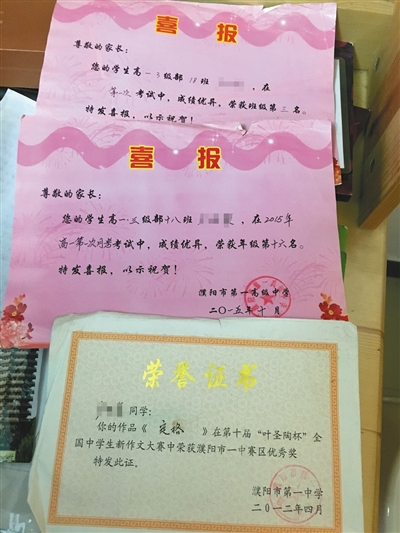 喜 报
尊敬的家长:
您的学生高一·三级部18班 ,在
第一次考试中,成绩优异,荣获班级第三名。
特发喜报,以示祝贺!
喜 报
尊敬的家长:
您的学生高一·三级部十八班 ,在2015年
高一第一次月考考试中,成绩优异,荣获年级第十六名。
特发喜报,以示祝贺!
濮阳市第一高级中学
二〇一五年十月
荣誉证书
同学:
你的作品《 定格 》在第十届“叶圣陶杯”全
国中学生新作文大赛中荣获濮阳市一中赛区优秀奖
特发此证。
濮阳市第一中学
二〇一二年四月